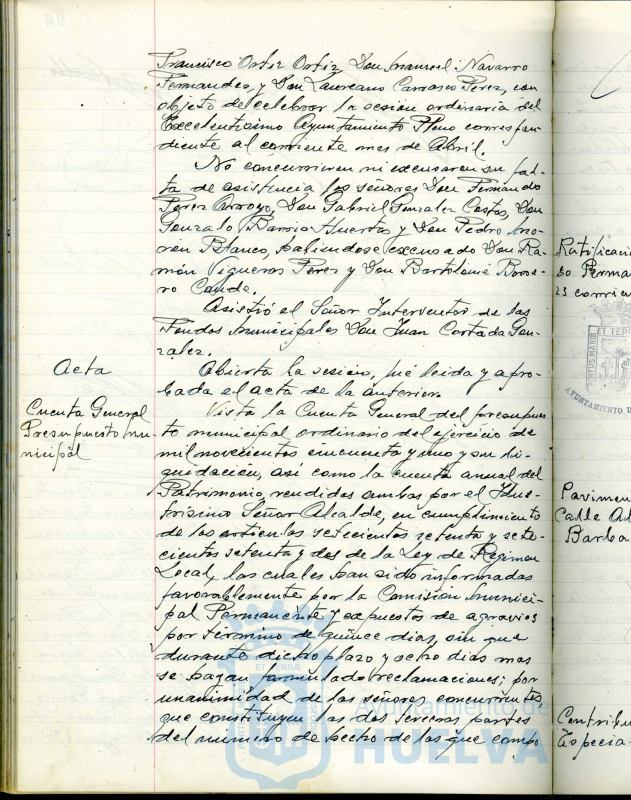 Francisco Ortiz Ortiz, Don Manuel Navarro
Fernandez, y Don Laureano Carrasco Perez, con
objeto de celebrar la sesion ordinaria del
Excelentisimo Ayuntamiento Pleno correspon-
diente al corriente mes de Abril.
No concurrieron ni excusaron su fal-
ta de asistencia los señores Don Fernando
Perez Arroyo, Don Gabriel Gonzalez Costas, Don
Gonzalo Barria Huertas y Don Pedro Mo-
ron Blanco, habiendose excusado Don Ra-
món Vigueras Perez y Don Bartolomé Borre-
ro Conde.
Asistió el Señor Interventor de los
Fondos Municipales Don Juan Cortada Gon-
zalez.
Acta
Abierta la sesión, fué leida y apro-
bada el acta de la anterior.
Cuenta General
Presupuesto Mu-
nicipal
Vista la Cuenta General del presupues
to municipal ordinario del ejercicio de
mil novecientos cincuenta y uno y su li-
quidación, así como la cuenta anual del
Patrimonio, rendidas ambas por el Ilus-
trisimo Señor Alcalde, en cumplimiento
de los articulos setecientos setenta y sete-
cientos setenta y dos de la Ley de Regimen
Local, las cuales han sido informadas
favorablemente por la Comisión Munici-
pal Permanente y expuestos de agravios
por término de quince dias, sin que
durante dicho plazo y ocho dias mas
se hayan formulado reclamaciones; por
unanimidad de los señores concurrentes
que constituyen las dos terceras partes
del número de hecho de los que compo
Ratificació
do Perma
23 corrien
PORTUS MARIS
ET TERRÆ
AYUNTAMIENTO D
Pavimen
Calle Al
Barba
Contribu
Especia
ET TERRÆ
Ayuntamiento de
HUELVA